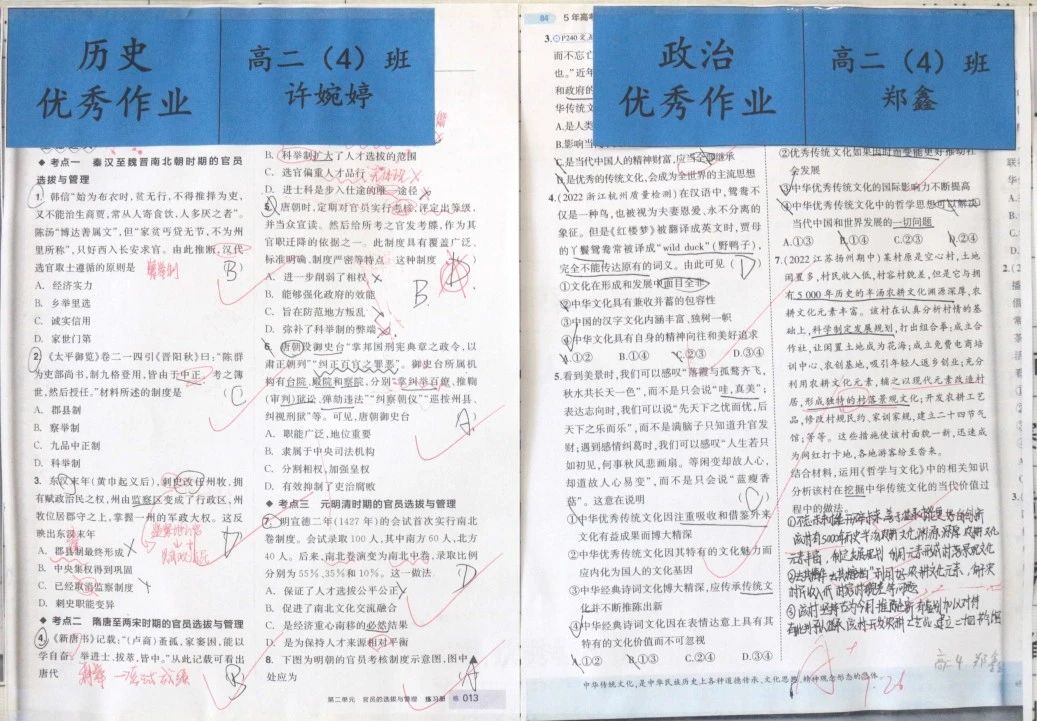 历史
优秀作业
高二（4）班
许婉婷
◆ 考点一 秦汉至魏晋南北朝时期的官员
选拔与管理
1. 韩信“始为布衣时，贫无行，不得推择为吏，
又不能治生商贾，常从人寄食饮，人多厌之者”。
陈汤“博达善属文”，但“家贫丐贷无节，不为州
里所称”，只好西入长安求官。由此推断，汉代
选官取士遵循的原则是 （B）
A. 经济实力
B. 乡举里选
C. 诚实信用
D. 家世门第
2. 《太平御览》卷二一四引《晋阳秋》曰：“陈群
为吏部尚书，制九格登用，皆由于中正，考之簿
世，然后授任。”材料所述的制度是 （C）
A. 郡县制
B. 察举制
C. 九品中正制
D. 科举制
3. 东汉末年（黄巾起义后），刺史改任州牧，拥
有赋政治民之权，州由监察区变成了行政区，州
牧位居郡守之上，掌握一州的军政大权。这反
映出东汉末年
A. 郡县制最终形成
B. 中央集权得到巩固
C. 已经取消监察制度
D. 刺史职能变异
◆ 考点二 隋唐至两宋时期的官员选拔与管理
4. 《新唐书》记载：“（卢商）蚤孤，家窭困，能以
学自奋，举进士、拔萃，皆中。”从此记载可看出
唐代
B. 科举制扩大了人才选拔的范围
C. 选官偏重人才品行
D. 进士科是步入仕途的唯一途径
5. 唐朝时，定期对官员实行考核，评定出等级，
并当众宣读。然后给所考之官发考牒，作为其
官职迁降的依据之一。此制度具有覆盖广泛、
标准明确、制度严密等特点。这种制度
A. 进一步削弱了相权
B. 能够强化政府的效能
C. 旨在防范地方叛乱
D. 弥补了科举制的弊端
6. 唐朝设御史台“掌邦国刑宪典章之政令，以
肃正朝列”“纠正百官之罪恶”。御史台所属机
构有台院、殿院和察院，分别“掌纠举百僚，推鞫
（审判）狱讼、弹劾违法”“纠察朝仪”“巡按州县、
纠视刑狱”等。可见，唐朝御史台 A
A. 职能广泛，地位重要
B. 隶属于中央司法机构
C. 分割相权，加强皇权
D. 有效抑制了吏治腐败
◆ 考点三 元明清时期的官员选拔与管理
7. 明宣德二年（1427年）的会试首次实行南北
卷制度。会试录取100人，其中南方60人，北方
40人。后来，南北卷演变为南北中卷，录取比例
分别为55%、35%和10%。这一做法
A. 保证了人才选拔公平公正
B. 促进了南北文化交流融合
C. 是经济重心南移的必然结果
D. 是为保持人才来源相对平衡
8. 下图为明朝的官员考核制度示意图，图中▲
处应为
第二单元 官员的选拔与管理 练习册 练 013
政治
优秀作业
高二（4）班
郑鑫
84 5年高考
3. P240
而不忘亡
也。”近年
和政府的
华传统文
A. 是人类
B. 影响当
C. 是当代中国人的精神财富，应当全部继承
D. 是优秀的传统文化，会成为全世界的主流思想
4. (2022 浙江杭州质量检测) 在汉语中，鸳鸯不
仅是一种鸟，也被视为夫妻恩爱、永不分离的
象征。但是《红楼梦》被翻译成英文时，贾母
的丫鬟鸳鸯常被译成“wild duck”（野鸭子），
完全不能传达原有的词义。由此可见 （D）
①文化在形成和发展中面目全非
②中华文化具有兼收并蓄的包容性
③中国的汉字文化内涵丰富、独树一帜
④中华文化具有自身的精神向往和美好追求
A.①② B.①④ C.②③ D.③④
5. 看到美景时，我们可以感叹“落霞与孤鹜齐飞，
秋水共长天一色”，而不是只会说“哇，真美”；
表达志向时，我们可以说“先天下之忧而忧，后
天下之乐而乐”，而不是满脑子只知道升官发
财；遇到感情纠葛时，我们可以感叹“人生若只
如初见，何事秋风悲画扇。等闲变却故人心，
却道故人心易变”，而不是只会说“蓝瘦香
菇”。这意在说明 （C）
①中华优秀传统文化因注重吸收和借鉴外来
文化有益成果而博大精深
②中华优秀传统文化因其特有的文化魅力而
应内化为国人的文化基因
③中华经典诗词文化博大精深，应传承传统文
化并不断推陈出新
④中华经典诗词文化因在表情达意上具有其
特有的文化价值而不可忽视
A.①② B.①③ C.②④ D.③④
②优秀传统文化如果因时而变能更好推动社
会发展
③中华优秀传统文化的国际影响力不断提高
④中华优秀传统文化中的哲学思想可以解决
当代中国和世界发展的一切问题
A.①③ B.①④ C.②③ D.②④
7. (2022 江苏扬州期中) 某村原是空心村，土地
闲置多，村民收入低，村容村貌差，但是它与拥
有5 000年历史的半汤农耕文化渊源深厚，农
耕文化元素丰富。该村在认真分析村情的基
础上，科学制定发展规划，打出组合拳：成立合
作社，让闲置土地成为花海；成立免费电商培
训中心、农创基地，吸引年轻人返乡创业；充分
利用农耕文化元素，辅之以现代元素改造村
居，形成独特的村落景观文化；开发农耕工艺
品，修改村规民约、家训家规，建立二十四节气
馆；等等。这些措施使该村面貌一新，迅速成
为网红打卡地，各地游客纷至沓来。
结合材料，运用《哲学与文化》中的相关知识
分析该村在挖掘中华传统文化的当代价值过
程中的做法。
高二4 郑鑫
中华传统文化，是中华民族历史上各种道德传承、文化思想、精神观念形态的总体